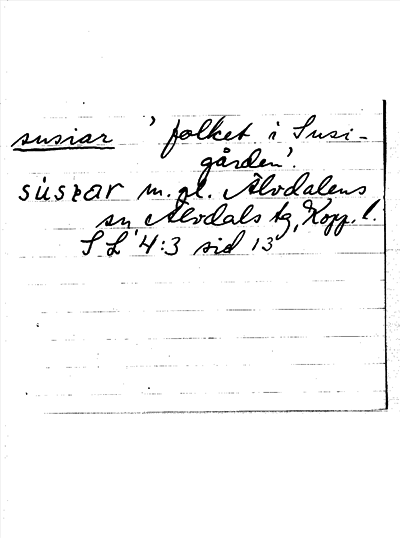 susiar 'folket i Susi-
gården'.
súsıar m. pl. Älvdalens
sn, Älvdals tg, Kopp. l.
SL 4:3 sid 13